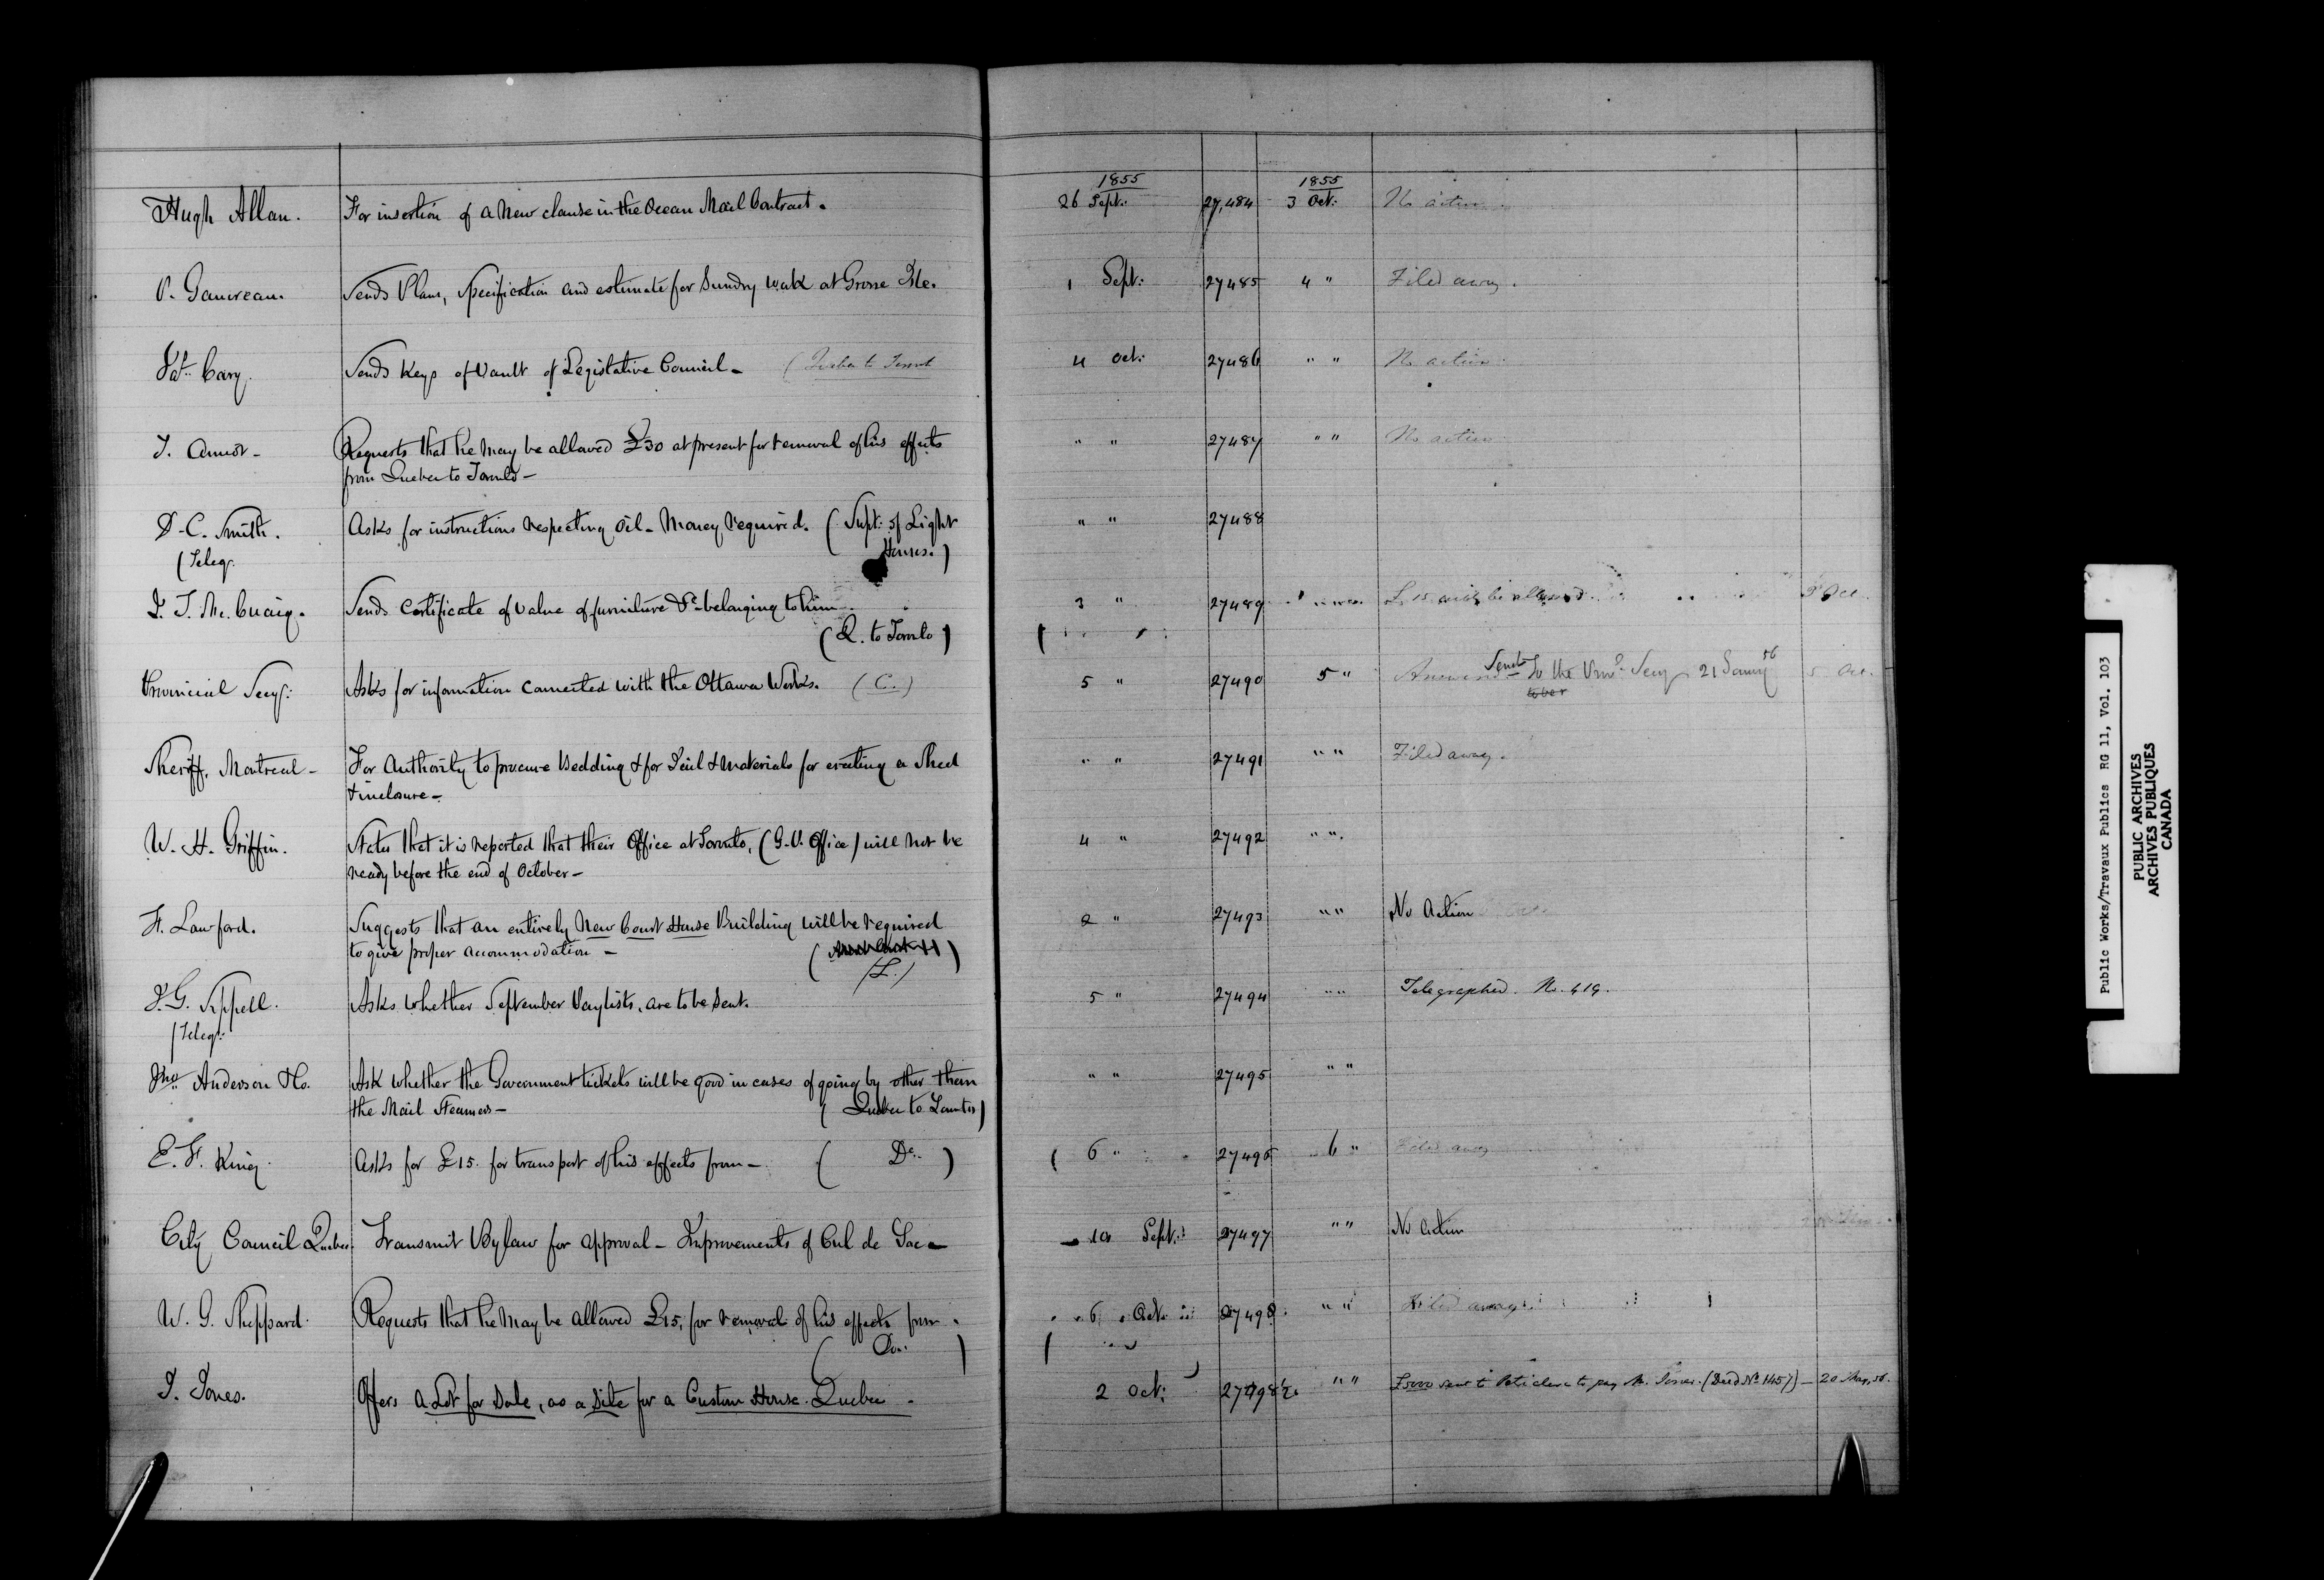 1855 1855
Hugh Allan. For insertion of a New clause in the Ocean Mail Contract. 26 Sept: 27,484 3 Oct: No action.
P. Gauvreau. Sends Plans, Specification and estimate for Sundry work at Grosse Isle. 1 Sept: 27485 4 " Filed away.
Cary. Sends Keys of Vault of Legislative Council - (Quebec to Toront 4 Oct: 27486 " " No action.
Requests that he may be allowed £30 at present for removal of his effects " " 27487 " " No action
from Quebec to Toronto -
D. C. Smith. Asks for instructions respecting Oil - Money required. (Supt: of Light " " 27488
(Teleg: Houses.)
J. T. Mc.Cuaig. Sends Certificate of value of furniture &c belonging to him 3 " 27489 £15 will be allowed
(Q. to Toronto)
Provincial Secy: Asks for information connected with the Ottawa Works. (C.) 5 " 27490 5 " Sent to the Prov: Secy 21 56 5 Oct.
Sheriff, Montreal - For Authority to procure Bedding & for & Materials for erecting a Shed " " 27491 " " Filed away.
& inclosure -
W. H. Griffin. States that it is reported that their Office at Toronto, (G. P. Office) will not be 4 " 27492 " "
ready before the end of October -
F. Lawford. Suggests that an entirely New Court House Building will be required 2 " 27493 " " No Action
to give proper accommodation -
(L.)
J. G. Sippell. Asks whether September Paylists, are to be sent. 5 " 27494 " " Telegraphed. No. 419.
(Teleg:
Jno. Anderson & Co. Ask whether the Government tickets will be good in cases of going by other than " " 27495 " "
the Mail Steamers - (Quebec to
E. F. King. Asks for £15. for transport of his effects from - (Do.) 6 " 27496 6 " Filed away
City Council Quebec Transmit Bylaw for approval - Improvements of Cul de Sac - Sept: 27497 " " No action
W. G. Sheppard. Requests that he may be allowed £15, for removal of his effects from 6 Oct 27498 " " Filed away
(Do.)
T. Jones. Offers a Lot for Sale, as a Site for a Custom House. Quebec. 2 Oct: 27498½ " " £5000 sent to to pay Mr. Jones. (Deed No. 1457) - 20 56.
Public Works/Travaux Publics RG 11, Vol. 103
PUBLIC ARCHIVES
ARCHIVES PUBLIQUES
CANADA